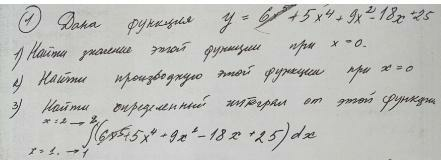 ① Дана функция y = 6x⁵ + 5x⁴ + 9x² - 18x + 25
1) Найти значение этой функции при x = 0.
2) Найти производную этой функции при x = 0
3) Найти определенный интеграл от этой функции
x = 2 → 2
∫(6x⁵ + 5x⁴ + 9x² - 18x + 25) dx
x = 1. → 1